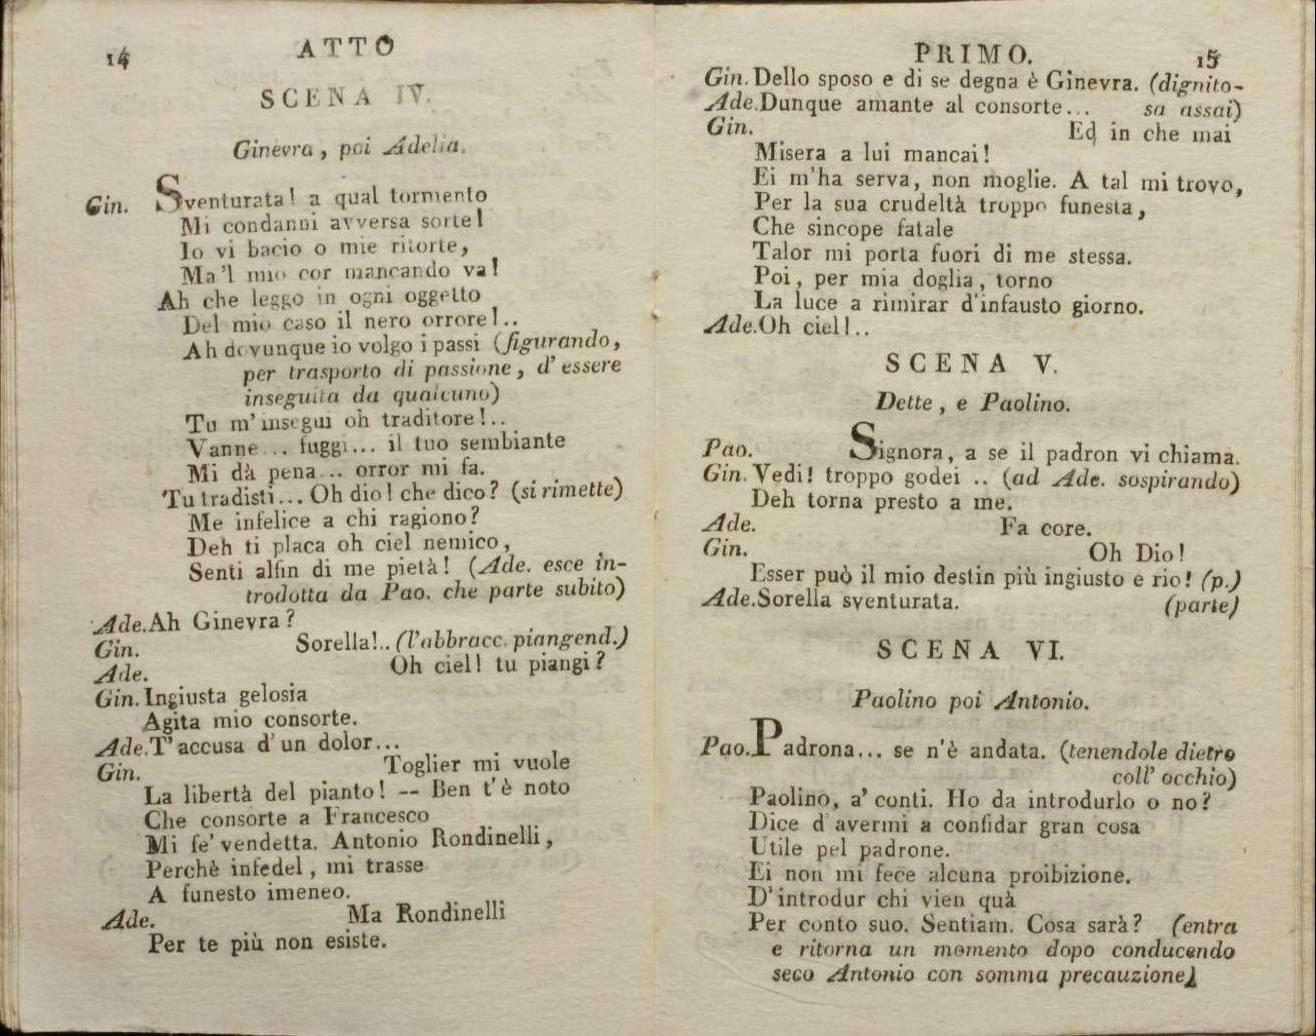 14
ATTO
SCENA IV.
Ginevra, poi Adelia.
Gin. Sventurata! a qual tormento
Mi condanni avversa sorte!
Io vi bacio o mie ritorte,
Ma'l mio cor mancando va!
Ah che leggo in ogni oggetto
Del mio caso il nero orrore!..
Ah dovunque io volgo i passi (figurando,
per trasporto di passione, d'essere
inseguita da qualcuno)
Tu m'insegui oh traditore!..
Vanne... fuggi... il tuo sembiante
Mi dà pena... orror mi fa.
Tu tradisti... Oh dio! che dico? (si rimette)
Me infelice a chi ragiono?
Deh ti placa oh ciel nemico,
Senti alfin di me pietà! (Ade. esce in-
trodotta da Pao. che parte subito)
Ade. Ah Ginevra?
Gin. Sorella!.. (l'abbracc. piangend.)
Ade. Oh ciel! tu piangi?
Gin. Ingiusta gelosia
Agita mio consorte.
Ade. T'accusa d'un dolor...
Gin. Toglier mi vuole
La libertà del pianto! -- Ben t'è noto
Che consorte a Francesco
Mi fe' vendetta. Antonio Rondinelli,
Perchè infedel, mi trasse
A funesto imeneo.
Ade. Ma Rondinelli
Per te più non esiste.
PRIMO. 15
Gin. Dello sposo e di se degna è Ginevra. (dignito-
Ade. Dunque amante al consorte... sa assai)
Gin. Ed in che mai
Misera a lui mancai!
Ei m'ha serva, non moglie. A tal mi trovo,
Per la sua crudeltà troppo funesta,
Che sincope fatale
Talor mi porta fuori di me stessa.
Poi, per mia doglia, torno
La luce a rimirar d'infausto giorno.
Ade. Oh ciel!..
SCENA V.
Dette, e Paolino.
Pao. Signora, a se il padron vi chiama.
Gin. Vedi! troppo godei .. (ad Ade. sospirando)
Deh torna presto a me.
Ade. Fa core.
Gin. Oh Dio!
Esser può il mio destin più ingiusto e rio! (p.)
Ade. Sorella sventurata. (parte)
SCENA VI.
Paolino poi Antonio.
Pao. Padrona... se n'è andata. (tenendole dietro
coll' occhio)
Paolino, a' conti. Ho da introdurlo o no?
Dice d'avermi a confidar gran cosa
Utile pel padrone.
Ei non mi fece alcuna proibizione.
D'introdur chi vien quà
Per conto suo. Sentiam. Cosa sarà? (entra
e ritorna un momento dopo conducendo
seco Antonio con somma precauzione)